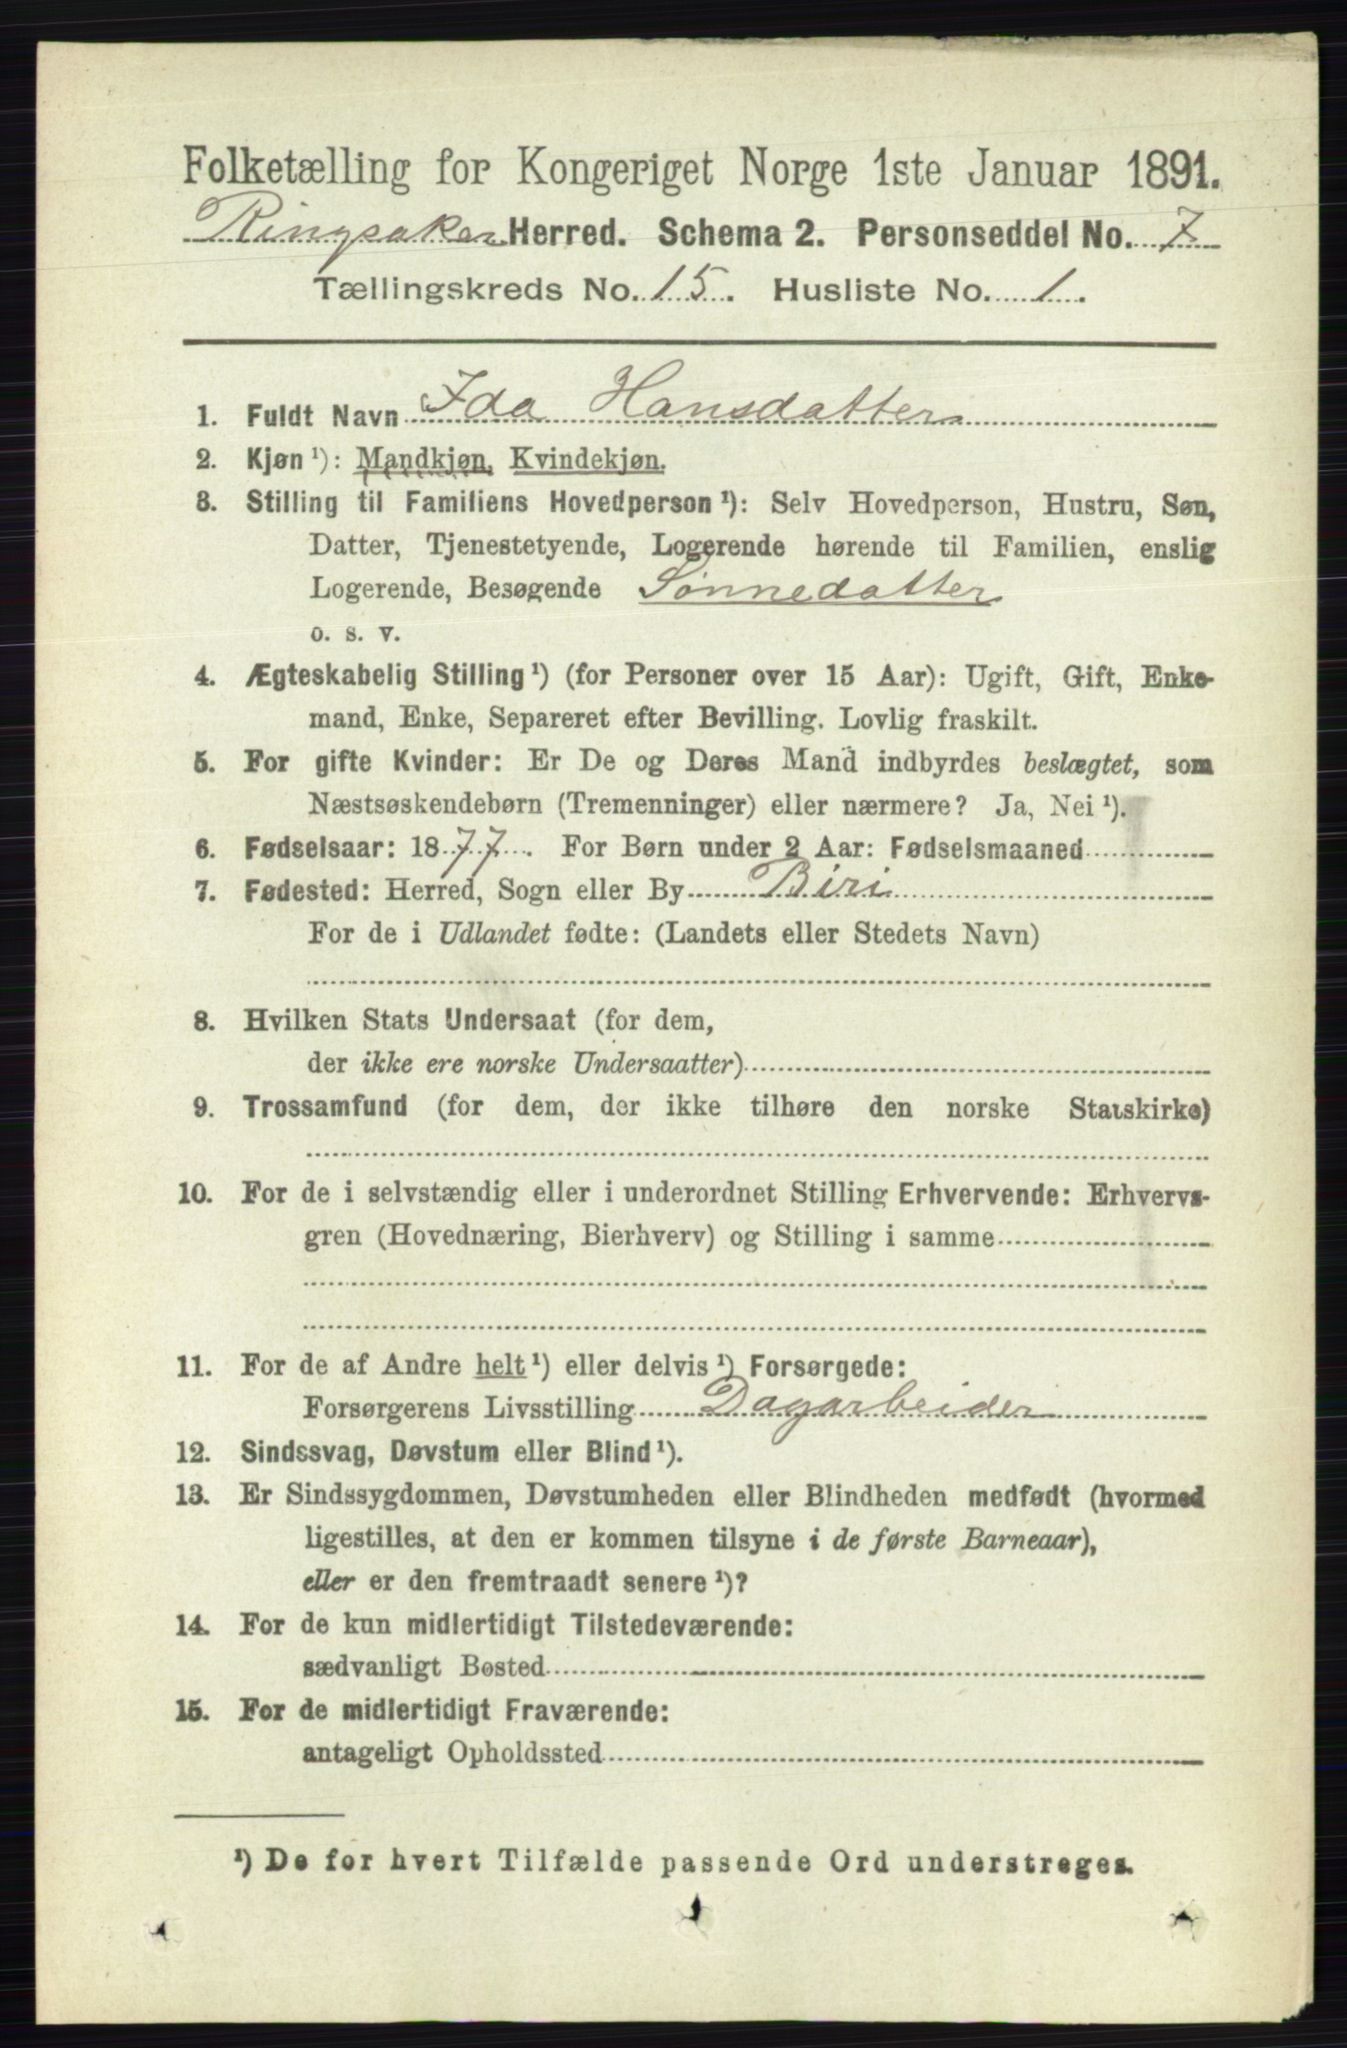 Folketælling for Kongeriget Norge 1ste Januar 1891.
Ringsaker Herred. Schema 2. Personseddel No. 7
Tællingskreds No. 15. Husliste No. 1.
1. Fuldt Navn Ida Hansdatter
2. Kjøn¹): Mandkjøn, Kvindekjøn.
3. Stilling til Familiens Hovedperson¹): Selv Hovedperson, Hustru, Søn,
Datter, Tjenestetyende, Logerende hørende til Familien, enslig
Logerende, Besøgende Sønnedatter
o. s. v.
4. Ægteskabelig Stilling¹) (for Personer over 15 Aar): Ugift, Gift, Enke-
mand, Enke, Separeret efter Bevilling. Lovlig fraskilt.
5. For gifte Kvinder: Er De og Deres Mand indbyrdes beslægtet, som
Næstsøskendebørn (Tremenninger) eller nærmere? Ja, Nei¹).
6. Fødselsaar: 1877. For Børn under 2 Aar: Fødselsmaaned
7. Fødested: Herred, Sogn eller By Biri
For de i Udlandet fødte: (Landets eller Stedets Navn)
8. Hvilken Stats Undersaat (for dem,
der ikke ere norske Undersaatter)
9. Trossamfund (for dem, der ikke tilhøre den norske Statskirke)
10. For de i selvstændig eller i underordnet Stilling Erhvervende: Erhvervs-
gren (Hovednæring, Bierhverv) og Stilling i samme
11. For de af Andre helt¹) eller delvis¹) Forsørgede:
Forsørgerens Livsstilling Dagarbeider
12. Sindssvag, Døvstum eller Blind¹).
13. Er Sindssygdommen, Døvstumheden eller Blindheden medfødt (hvormed
ligestilles, at den er kommen tilsyne i de første Barneaar),
eller er den fremtraadt senere¹)?
14. For de kun midlertidigt Tilstedeværende:
sædvanligt Bosted
15. For de midlertidigt Fraværende:
antageligt Opholdssted
¹) De for hvert Tilfælde passende Ord understreges.